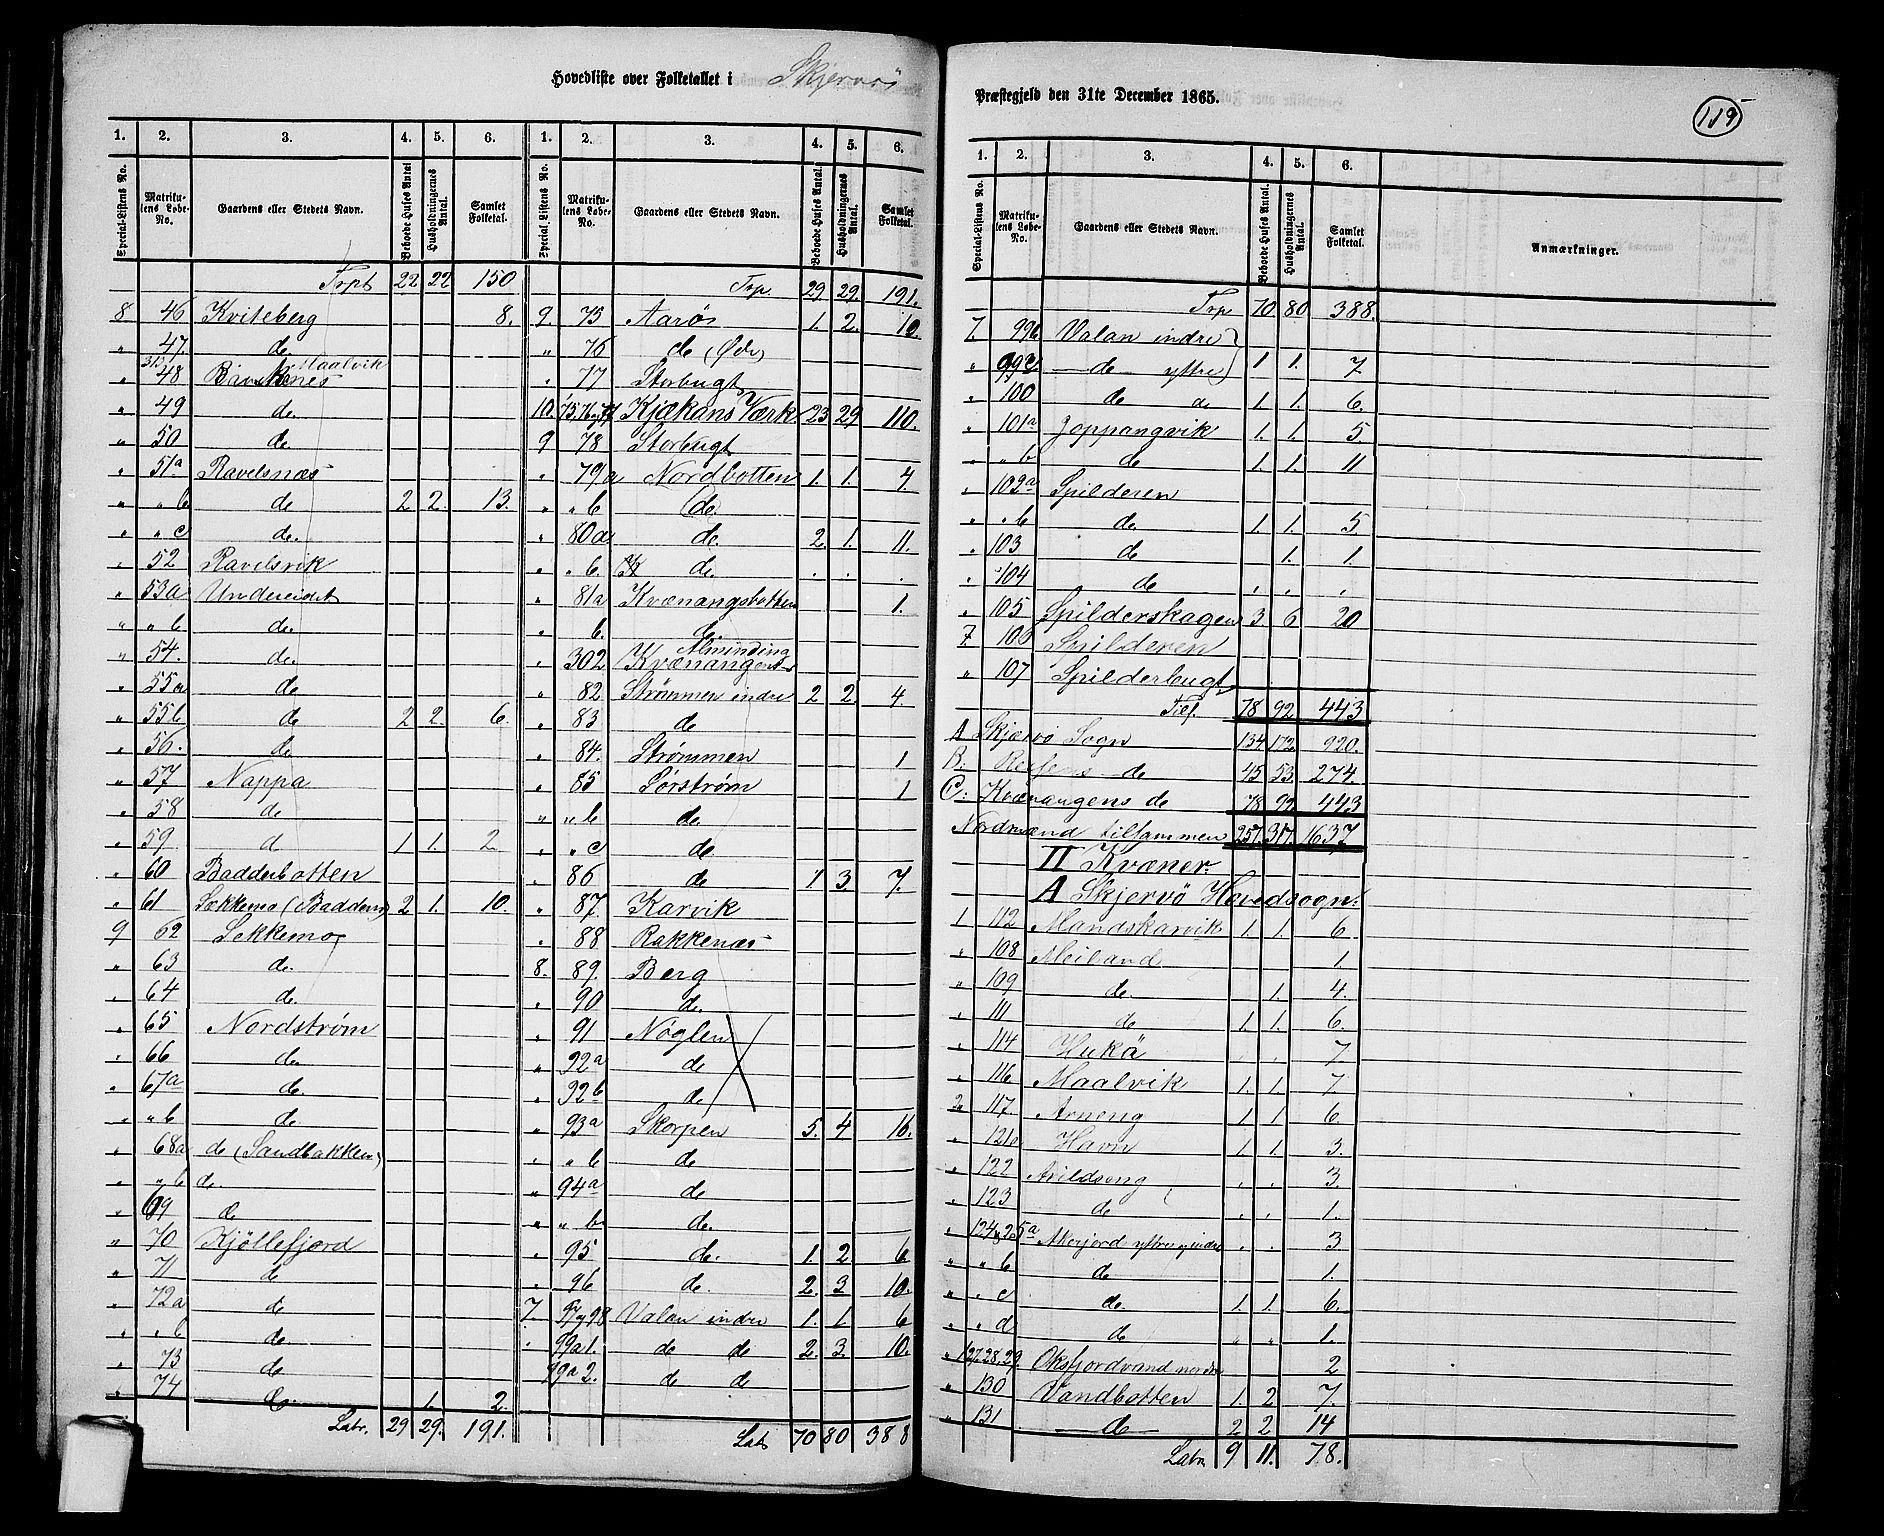 Hovedliste over Folketallet i Skjervö
1. 2. 3. 4. 5. 6.
Special-Listens No. Matrikulens Løbe-No. Gaardens eller Stedets Navn. Beboede Huses Antal Husholdningernes Antal. Samlet Folketal.
Trpt 22 22 150
8 46 Kviteberg 8.
" 47. de
" 48 Maalvik
" 49 de.
" 50 de
" 51a Ravelsnæs
" " b de 2 2. 13.
" " c de.
" 52 Ravelsvik
" 53a Undereidet
" " b de.
" 54. de.
" 55a de
" 55b de 2 2. 6.
" 56. de
" 57 Nappa
" 58 de
" 59 d 1 1. 2
" 60 Badderbotten
" 61 Sækkemo (Badderen) 2 1. 10.
9 62 Sekkemo
" 63 de.
" 64 de.
" 65 Nordstrøm
" 66 de.
" 67a de.
" " b de
" 68a de (Sandbakken)
" " b de.
" 69 de
" 70 Kjöllefjord
" 71 de
" 72a de
" " b de
" 73 de
" 74 de. 1. 2.
Latr. 29 29. 191.
1. 2. 3. 4. 5. 6.
Special-Listens No. Matrikulens Løbe-No. Gaardens eller Stedets Navn. Beboede Huses Antal. Husholdningernes Antal. Samlet Folketal.
Trp. 29. 29. 191.
9. 75 Aarøs 1. 2. 10
" 76 de (Øde)
" 77 Storbugt
10. 75.76.77 Kjækans Værk 23 29 110.
9 78 Storbugt
" 79a Nordbotten 1. 1. 4.
" " b (de.
" 80a de. 2. 1. 11.
" " b. de. . . .
" 81a Kvænangsbotten 1.
" b. de
" 302 Kvænangens Alminding
" 82 Strømmen indre 2 2. 4.
" 83 de
" 84. Strømmen 1
" 85 Sørstrøm 1
" " b de
" " c de
" 86 de 1 3 7.
" 87. Karvik
" 88 Rakkenæs
8. 89. Berg
" 90 de.
" 91 Nöglen
" 92a de
" 92b de
" 93a Skorpen 5. 4 16.
" " b de
" 94a de
" " b de.
" 95 de. 1. 2 6
" 96 de. 2. 3 10.
7. 97 y 98 Valan indre 1. 1. 6
" 99a1. de de 2. 3. 10.
99a2. de de
Lats 70 80 388
Præstegjeld den 31te December 1865.
119
1. 2. 3. 4. 5. 6.
Special-Listens No. Matrikulens Løbe-No. Gaardens eller Stedets Navn. Beboede Huses Antal. Husholdningernes Antal. Samlet Folketal. Anmærkninger.
Trp 70. 80 388.
7. 99b Valan indre
" 99c de yttre 1 1. 7
" 100 de de 1. 1. 6.
" 101a Joppangvik 1. 1. 5.
" " b de 1. 1. 11
" 102a Spilderen
" " b de. 1. 1. 5
" 103 de 1. 1.
" 104 de . . .
" 105 Spilderskagen 3 6 20
7 106 Spilderen
" 107 Spilderbugt
Tils. 78 92 443
A Skjærvö Sogn 134 172 920.
B. de 45 53. 274.
C. Kvænangens de 78 92 443
Nordmænd tilsammen 257. 317. 1637.
II Kvæner.
A Skjervö Hovedsogn.
1 112 Mandskarvik 1. 1. 6
" 108 Meiland 1.
" 109 de. 1. 4.
" 111 de 1. 1. 6.
" 114 Hukö . . 7
" 116 Maalvik 1. 1. 7
2 117. Arneng 1 1 6.
" 121a Havn 1 1. 3.
" 122 Arildseng . . 3.
" 123 de . . 1.
" 124.25a Akerjord yttre y indre . . 3
" " b de 1.
" " c de. 1. 1. 6.
" " d de " " 1.
" 127.28.29. Oksfjordvand nordre 2
" 130 Vandbotten 1. 2 7.
" 131 de 2 2 14
Latr 9 11. 78.